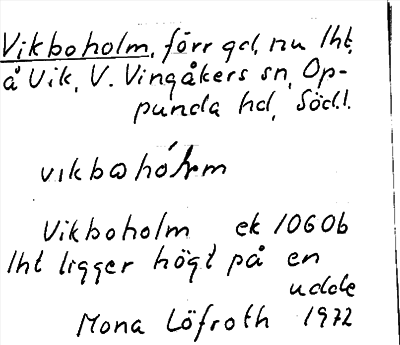 Vikboholm, förr gd, nu lht,
å Vik, V. Vingåkers sn, Op-
punda hd, Södl.
Vikboholm ek 1060b
lht ligger högt på en
udde
Mona Löfroth 1972